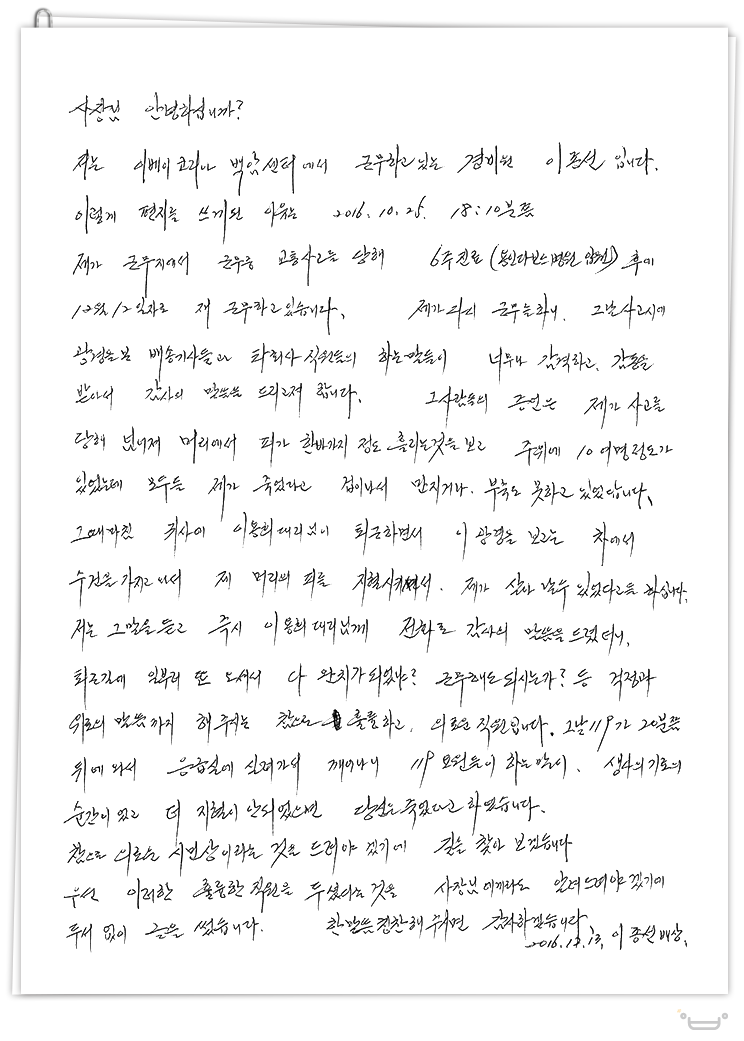 사장님 안녕하십니까?
저는 이베이코리아 백암센터에서 근무하고 있는 경비원 이종선입니다.
이렇게 편지를 쓰게된 이유는 2016. 10. 25. 18:10분쯤
제가 근무지에서 근무중 교통사고를 당해 6주진료 (용인다보스병원 입원) 후에
12월 12일자로 재 근무하고 있습니다. 제가 다시 근무를 하니, 그날 사고시에
광경을 본 배송기사들과 타회사 직원들의 하는말들이 너무나 감격하고, 감동을
받아서 감사의 말씀을 드리고저 합니다. 그사람들의 증언은 제가 사고를
당해 넘어져 머리에서 피가 한바가지 정도 흘리는것을 보고 주위에 10여명정도가
있었는데 모두들 제가 죽었다고 겁이나서 만지거나 부축도 못하고 있었답니다.
그때마침 귀사에 이용희대리님이 퇴근하면서 이 광경을 보고는 차에서
수건을 가지고 와서 제 머리의 피를 지혈시켜서. 제가 살아 날수 있었다고들 하십니다.
저는 그말을 듣고 즉시 이용희대리님께 전화로 감사의 말씀을 드렸더니,
퇴근길에 일부러 또 오셔서 다 완치가 되었나? 근무해도 되시는가? 등 걱정과
위로의 말씀까지 해주시는 참으로 훌륭하고, 의로운 직원입니다. 그날 119가 20분쯤
뒤에 와서 응급실에 실려가서 깨어나니 119 요원들이 하는말이. 생사의 기로의
순간이었고 더 지혈이 안되었으면 당신은 죽었다고 하였습니다.
참으로 의로운 시민상이라는 것을 드려야 겠기에 길을 찾아 보겠습니다
우선 이러한 훌륭한 직원을 두셨다는 것을 사장님에게라도 알려드려야 겠기에
두서 없이 글을 썼습니다. 한말씀 칭찬해 주시면 감사하겠습니다.
2016. 12. 13. 이종선 배상.